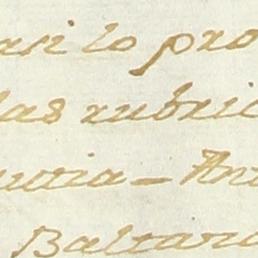 asi lo pro
las rubric
utia - An
Baltaro